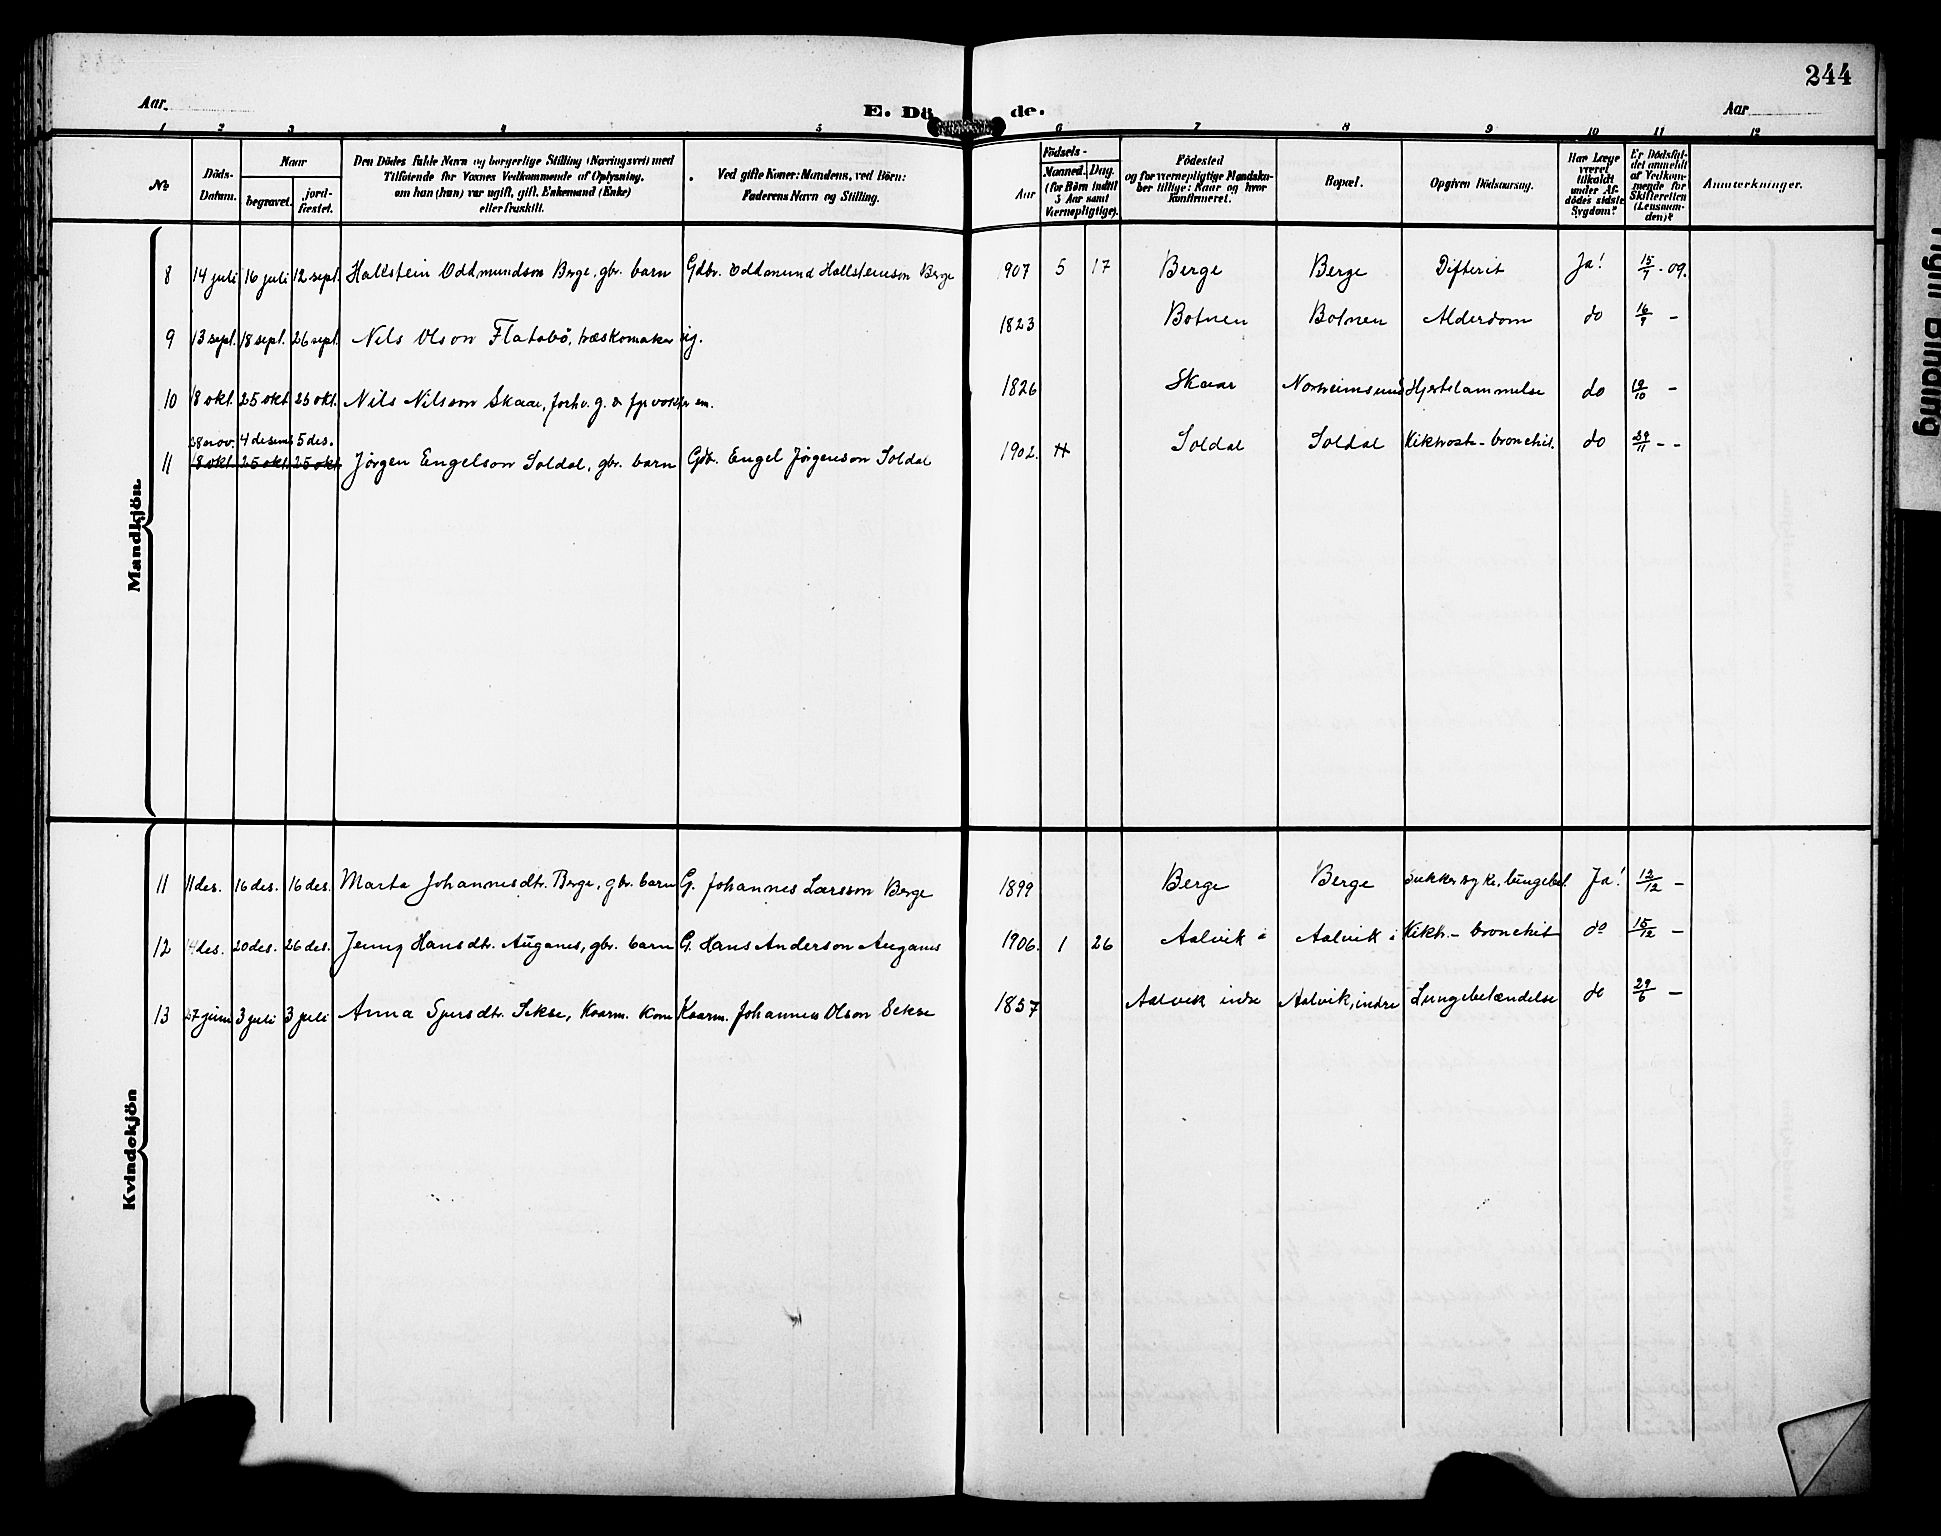 244
Aar
E. Döde.
Aar
1 2 3 4 5 6 7 8 9 10 11 12
No
Döds-Datum.
Naar
begravet.
jord-fæstet.
Den Dödes fulde Navn og borgerlige Stilling (Næringsvei) med
Tilföiende for Voxnes Vedkommende af Oplysning,
om han (hun) var ugift, gift, Enkemand (Enke)
eller fraskilt.
Ved gifte Koner: Mandens, ved Börn:
Faderens Navn og Stilling.
Födsels-
Aar
Maaned. Dag.
(for Börn indtil
3 Aar samt
Værnepligtige).
Födested
og for værnepligtige Mandska-
ber tillige: Naar og hvor
konfirmeret.
Bopæl.
Opgiven Dödsaarsag.
Har Læge
været
tilkaldt
under Af-
dödes sidste
Sygdom?
Er Dödsfal-
det anmeldt
af Vedkom-
mende for
Skifteretten
(Lensman-
den)?
Anmærkninger.
Mandkjön.
8 14 juli 16 juli 12 sept. Hallstein Oddmundson Berge, gbr. barn Gdbr. Oddmund Hallsteinson Berge 1907 5 17 Berge Berge Difterit Ja! 15/7 - 09.
9 13 sept. 18 sept. 26 sept. Nils Olson Flatabö, træskomaker ug. 1823 Botnen Botnen Alderdom do 16/9 -
10 18 okt. 25 okt. 25 okt. Nils Nilsson Skaar, forhv. g. & em. 1826 Skaar Norheimsund Hjertelammelse do 19/10 -
28 nov. 4 desemb. 5 des.
11 18 okt. 25 okt. 25 okt. Jörgen Engelson Soldal, gbr. barn Gdbr. Engel Jörgenson Soldal 1902. Soldal Soldal Kikhoste-bronchit. do 29/11 - -
Kvindekjön
11 11 des. 16 des. 16 des. Marta Johannesdtr. Berge, gbr. barn G. Johannes Larsson Berge 1899 Berge Berge Sukkersyke, lungebet. Ja! 12/12 -
12 14 des. 20 des. 26 des. Jenny Hansdtr. Auganes, gbr. barn G. Hans Anderson Auganes 1906. 1 26 Aalvik i Aalvik i Kikh.-bronchit do 15/12 -
13 27 juni 3 juli 3 juli Anna Sjursdtr. Sekse, Kaarm. kone Kaarm. Johannes Olson Sekse 1857 Aalvik indre Aalvik, indre Lungebetændelse do 29/6 -
Tight Binding